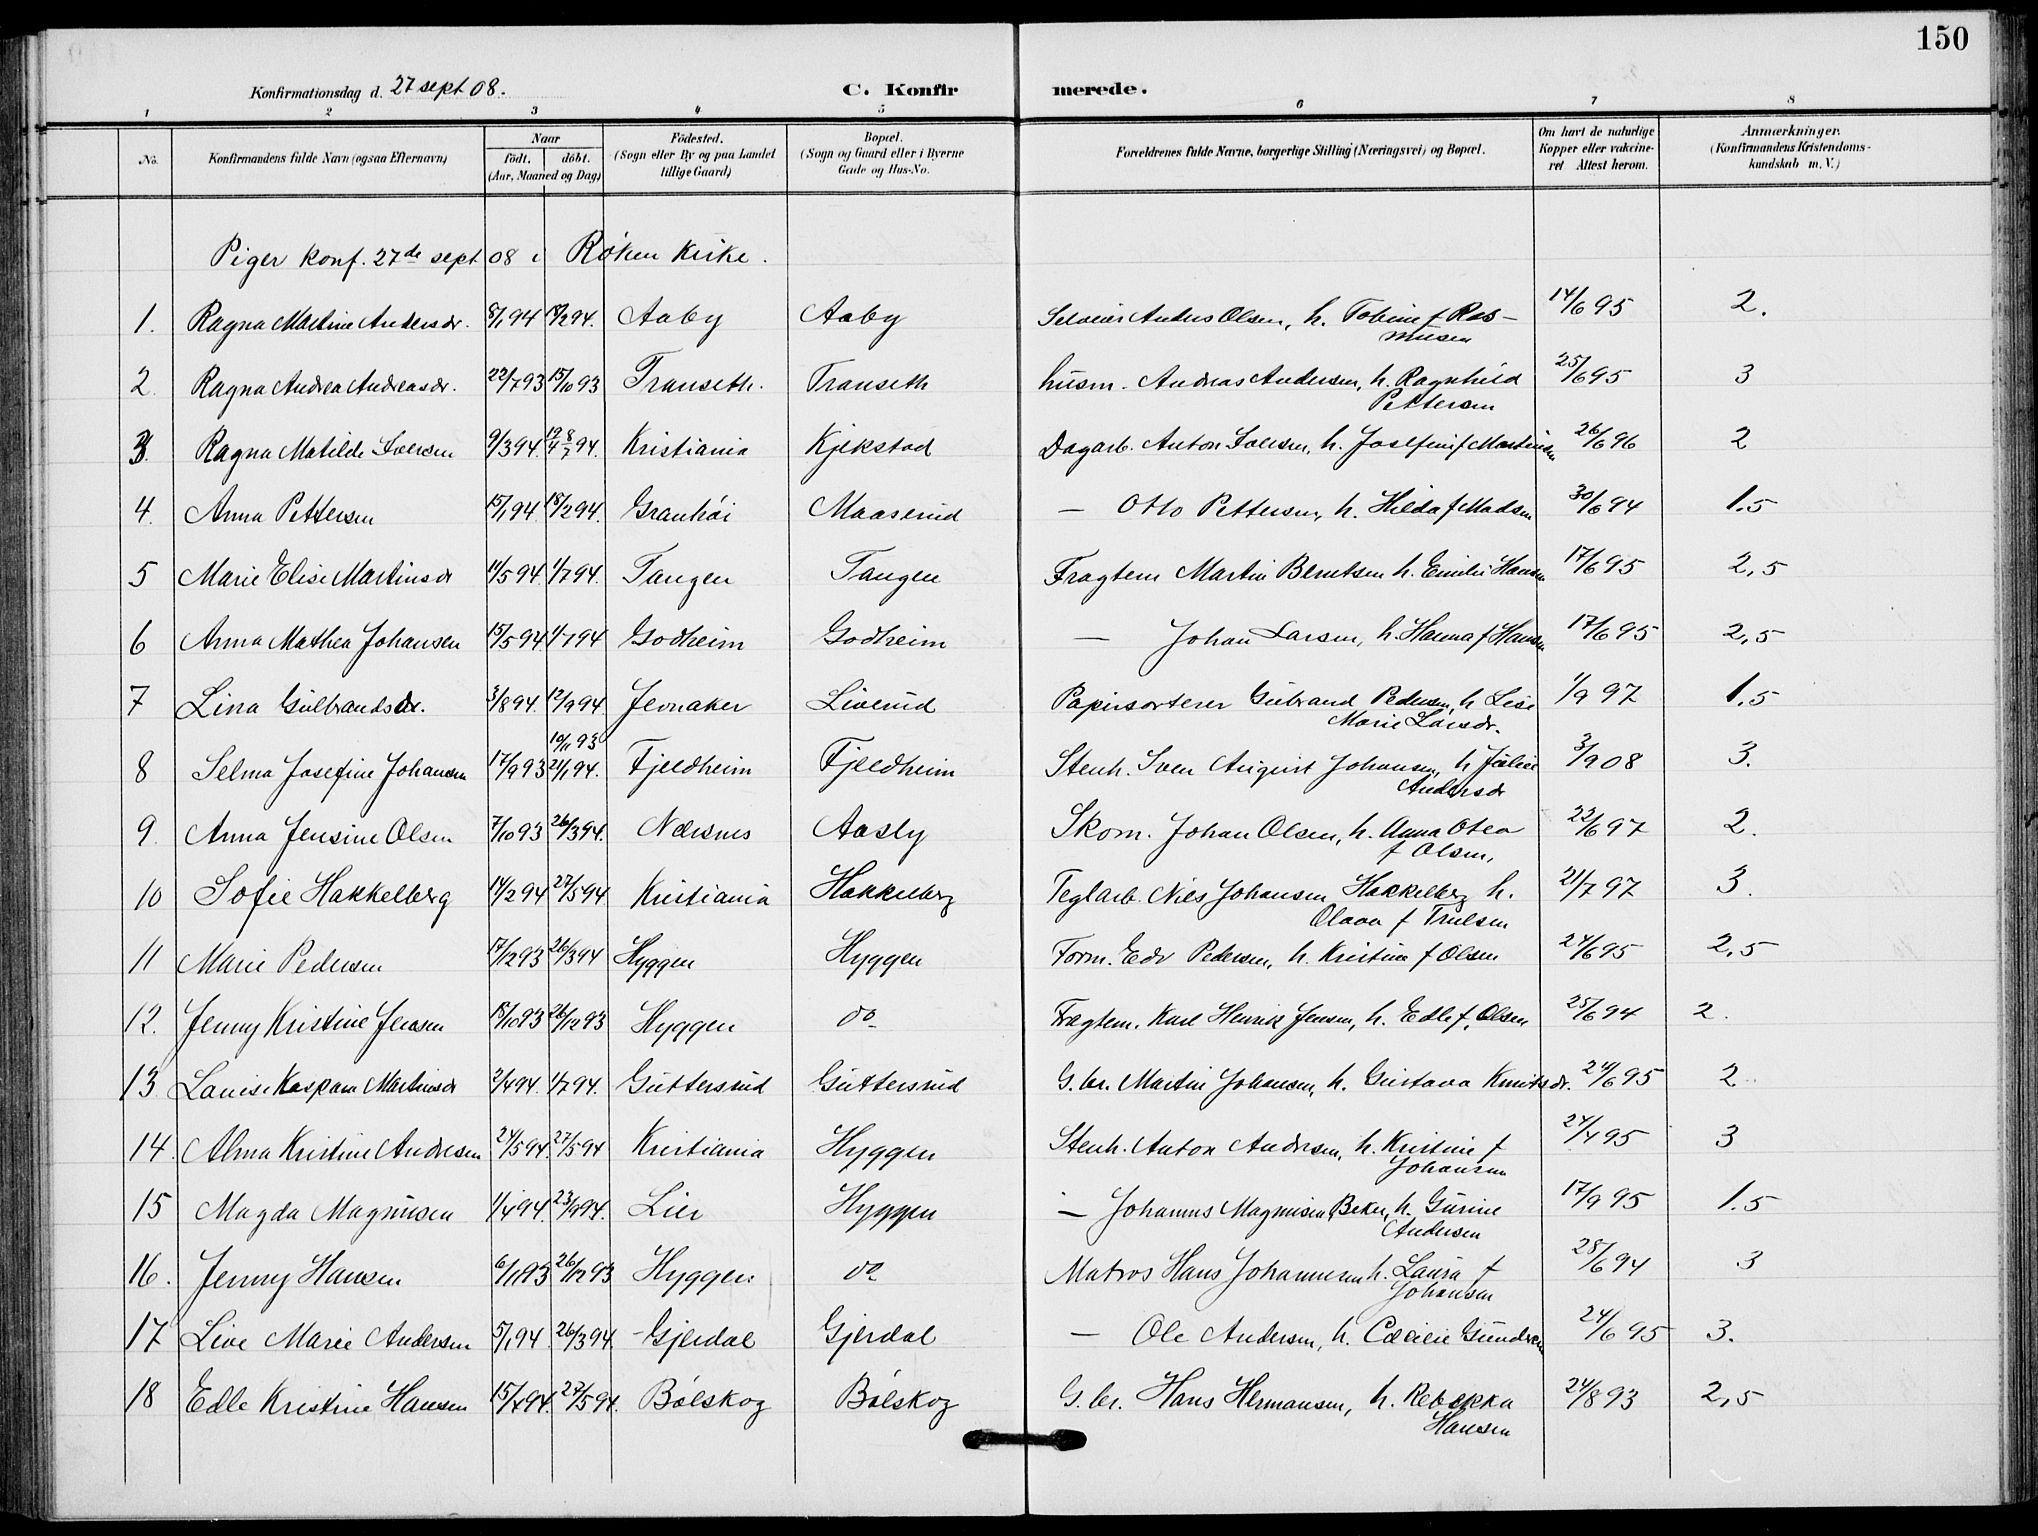 150
Konfirmationsdag d. 27 sept 08.
C. Konfirmerede.
1 2 3 4 5 6 7 8
No.
Konfirmandens fulde Navn (ogsaa Efternavn)
Naar
födt. döbt.
(Aar, Maaned og Dag)
Födested.
(Sogn eller By og paa Landet
tillige Gaard)
Bopæl.
(Sogn og Gaard eller i Byerne
Gade og Hus-No.
Forældrenes fulde Navne, borgerlige Stilling (Næringsvei) og Bopæl.
Om havt de naturlige
Kopper eller vakcine-
ret Attest herom.
Anmærkninger.
(Konfirmandens Kristendoms-
kundskab m. V.)
Piger konf. 27de sept 08 i Røken Kirke.
1. Ragna Martine Andersdr. 8/1 94 18/2 94. Aaby Aaby Selveier Anders Olsen, h. Tobine f Ras- 14/6 95 2.
musen
2. Ragna Andrea Andreasdr. 22/7 93 15/10 93 Transeth. Transeth husm. Andreas Andersen, h. Ragnhild 25/6 95 3
Pettersen
3. Ragna Matilde Iversen 9/3 94 19/4 8/7 94. Kristiania Kjekstad Dagarb. Anton Iversen, h. Josefine f Martinsen 26/6 96 2
4. Anna Pettersen 15/1 94. 18/2 94. Granhøi Maaserud — Otto Pettersen, h. Hilda f Madsen 30/6 94 1.5
5 Marie Elise Martinsdr 11/5 94 1/7 94. Tangen Tangen Fragtem Martin Berntsen h. Emilie Hansen 17/6 95 2,5
6 Anna Mathea Johansen 15/5 94 1/7 94 Godheim Godheim — Johan Larsen, h. Hanna f Hansen 17/6 95 2,5
7 Lina Gulbrandsdr. 3/8 94. 12/9 94 Jevnaker Liverud Papirsorterer Gulbrand Pedersen, h Lise 1/9 97 1.5
Marie Larsdr.
10/11 93
8 Selma Josefine Johansen 17/9 93 21/1 94. Fjeldheim Fjeldheim Stenh. Sven August Johansen, h Julie 3/9 08 3.
Andersdr
9. Anna Jensine Olsen 7/10 93 26/3 94. Nærsnes Aasly Skom. Johan Olsen, h. Anna Otea 22/6 97 2.
f Olsen,
10 Sofie Hakkelberg 14/2 94 27/5 94 Kristiania Hakkelberg Teglarb. Nils Johansen Hakkelberg h. 21/7 97 3.
Olava f Trulsen
11 Marie Pedersen 17/12 93 26/3 94 Hyggen Hyggen Form. Edv Pedersen, h. Kristine f Olsen 24/6 95 2,5
12. Jenny Kristine Jensen 18/10 93 26/12 93 Hyggen do Fragtem. Karl Henrik Jensen, h. Edle f. Olsen 25/6 94 2.
13 Lovise Kaspara Martinsdr 2/4 94. 1/7 94. Guttersrud Guttersrud G.br. Martin Johansen, h. Gustava Knutsdr. 24/6 95 2
14. Alma Kristine Andresen 24/5 94. 27/5 94 Kristiania Hyggen Stenh. Anton Andresen, h. Kristine f 27/4 95 3
Johansen
15 Magda Magnusen 1/4 94. 23/9 94. Lier Hyggen — Johannes Magnusen Beker, h. Gurine 17/9 95 1.5
Andersen
16. Jenny Hansen 6/11 93 26/12 93 Hyggen do Matros Hans Johannesen h. Laura f 28/6 94 3
Johansen
17 Live Marie Andersen 5/1 94. 26/3 94. Gjerdal Gjerdal — Ole Andersen, h. Cæcilie Gundersen 24/6 95 3.
18 Edle Kristine Hansen 15/4 94. 27/5 94. Bølskog Bølskog G.br. Hans Hermansen, h. Rebekka 24/8 93 2,5
Hansen